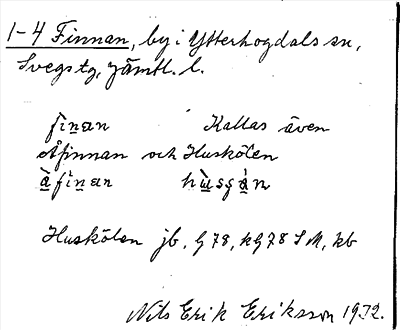 1-4 Finnan, by i Ytterhogdals sn,
Svegs tg, Jämtl. l.
fìnan Kallas även
Åfinnan och Huskölen
å̀fìnan
Huskölen jb, G 78, kG 78 SM, kb
Nils Erik Eriksson 1932.